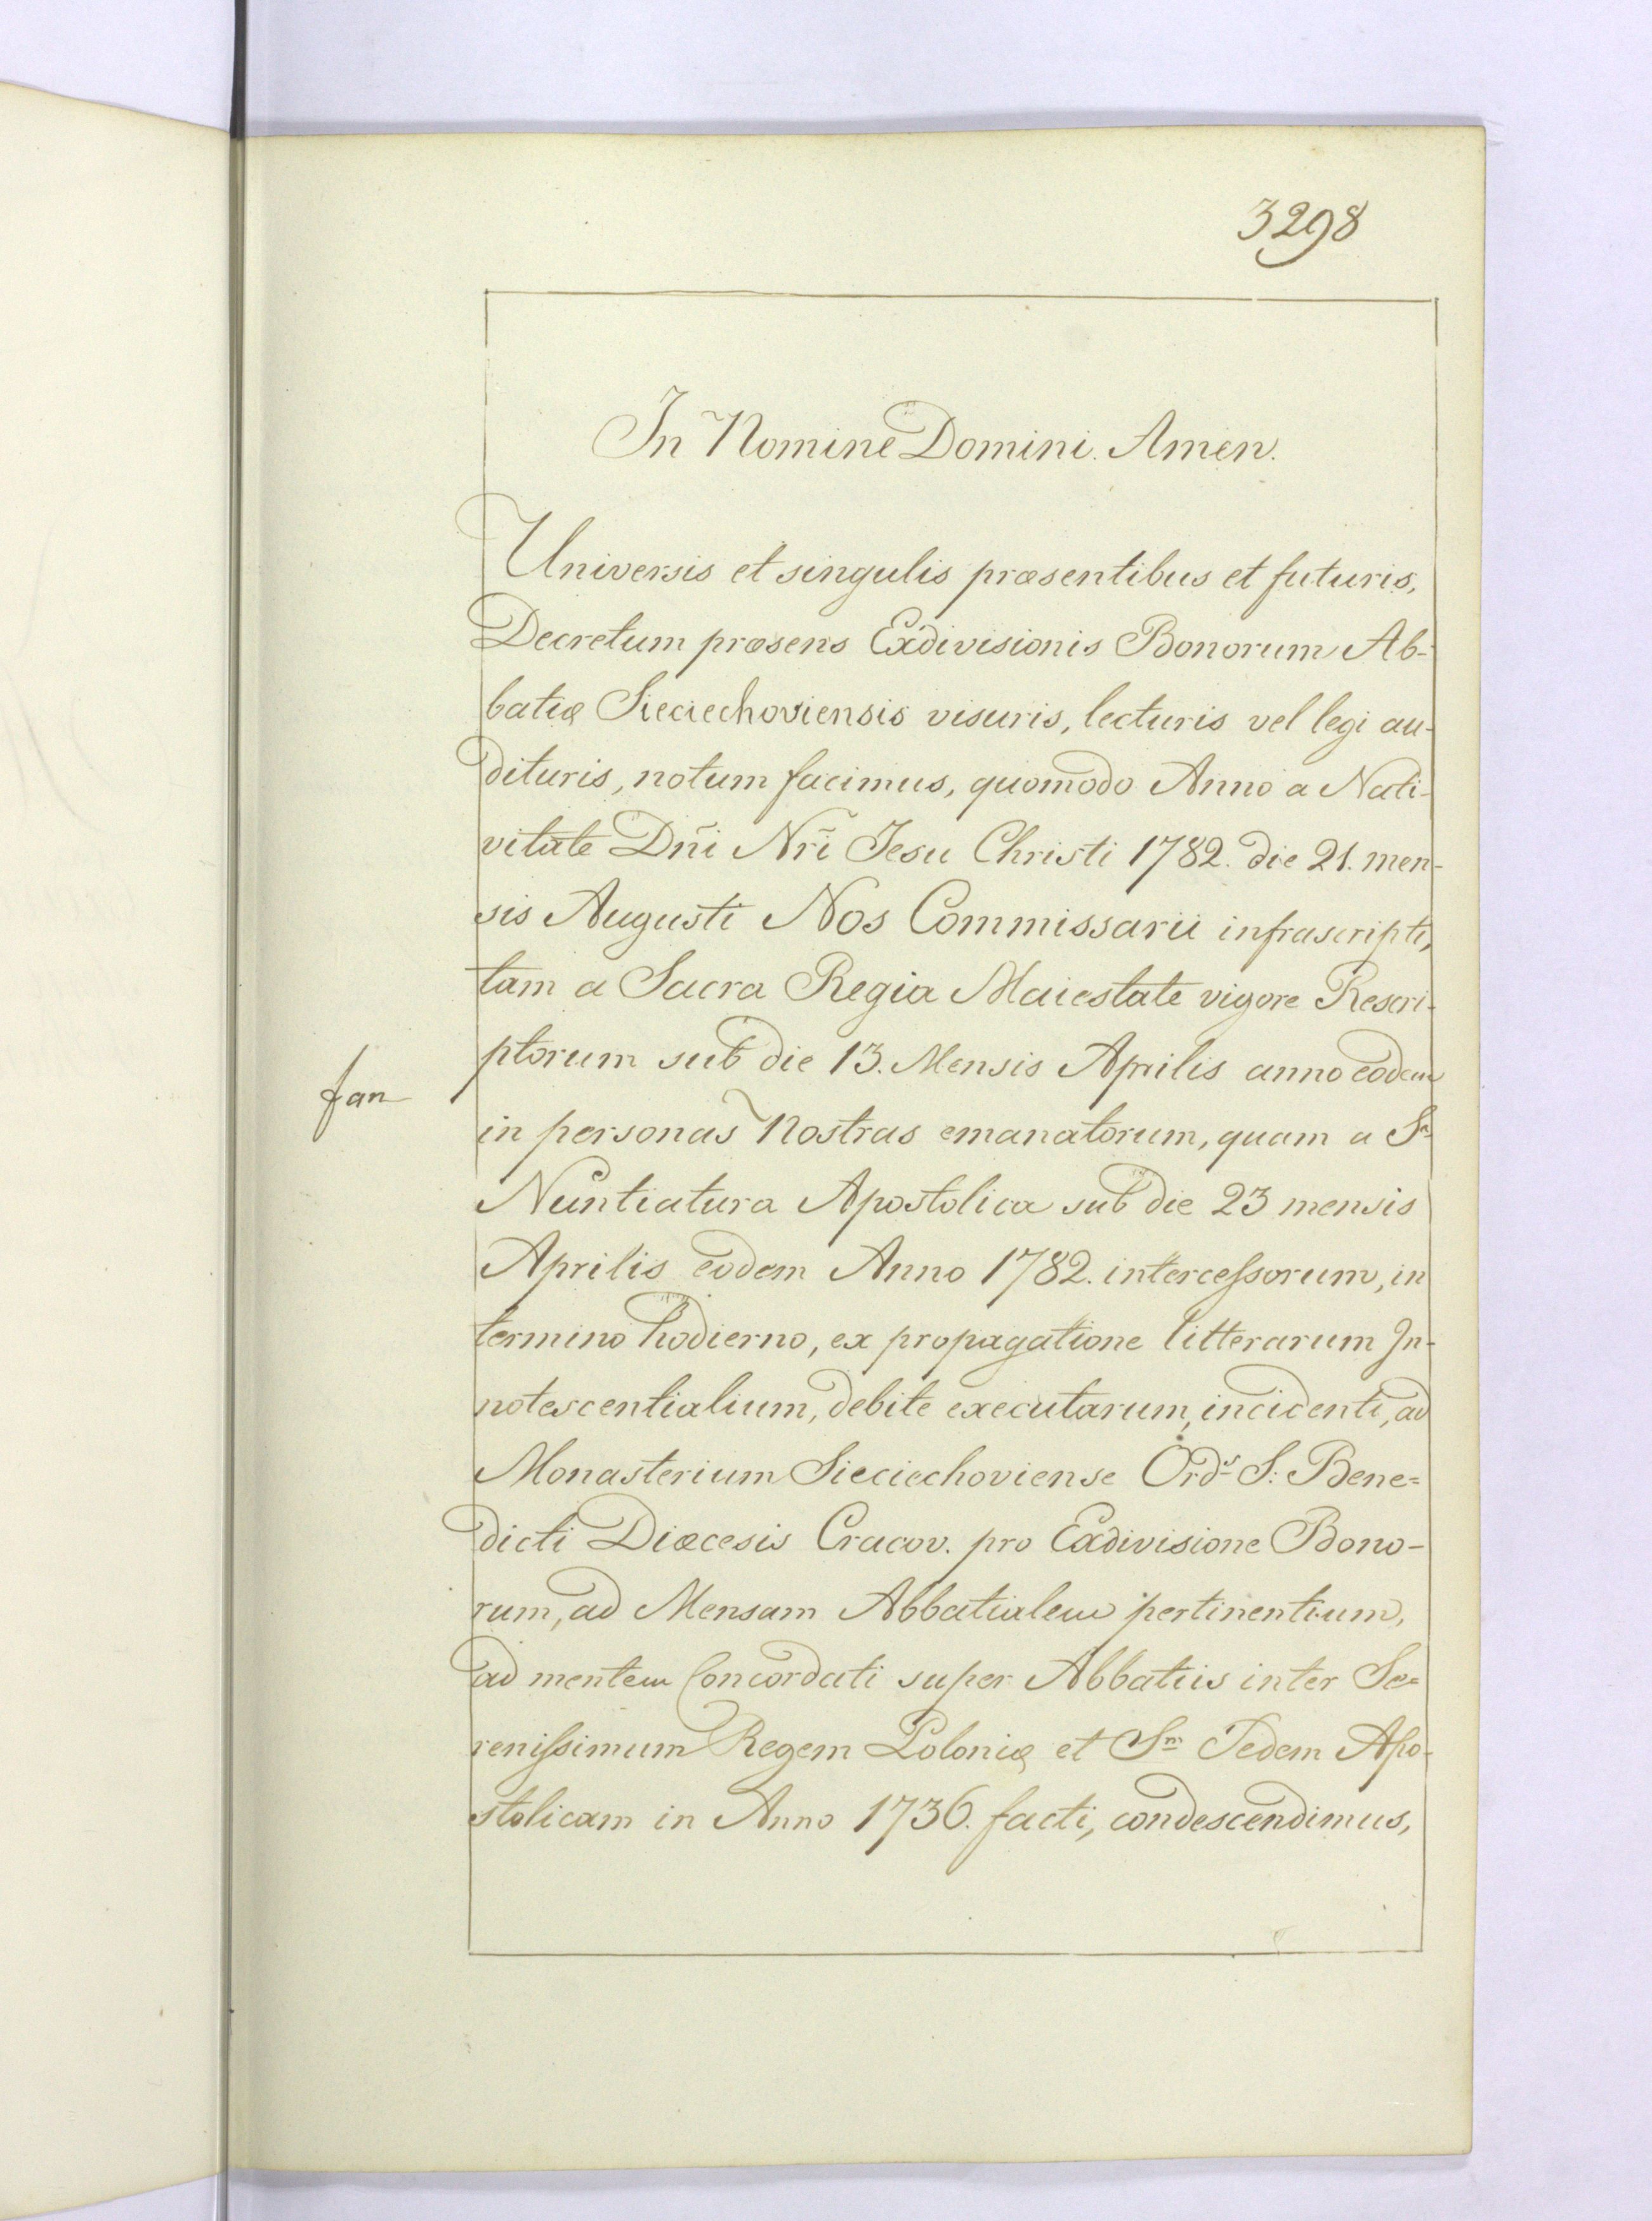 3298
In Nomine Domini. Amen.
Universis et singulis præsentibus et futuris,
Decretum præsens Exdivisionis Bonorum Ab-
batiæ Sieciechoviensis visuris, lecturis vel legi au-
dituris, notum facimus, quomodo Anno a Nati-
vitate Dn̄i Nr̄i Iesu Christi 1782. die 21. men-
sis Augusti Nos Commissarii infrascripti,
tam a Sacra Regia Maiestate vigore Rescri-
ptorum sub die 13. Mensis Aprilis anno eodem
fan
in personas Nostras emanatorum, quam a Sᵃ
Nuntiatura Apostolica sub die 23 mensis
Aprilis eodem Anno 1782. intercessorum, in
termino hodierno, ex propagatione litterarum In-
notescentialium, debite executarum, incidenti, ad
Monasterium Sieciechoviense Ordˢ S: Bene=
dicti Diæcesis Cracov. pro Exdivisione Bono-
rum, ad Mensam Abbatialem pertinentium,
ad mentem Concordati super Abbatiis inter Se=
renissimum Regem Poloniæ et Sᵐ Sedem Apo-
stolicam in Anno 1736. facti, condescendimus,